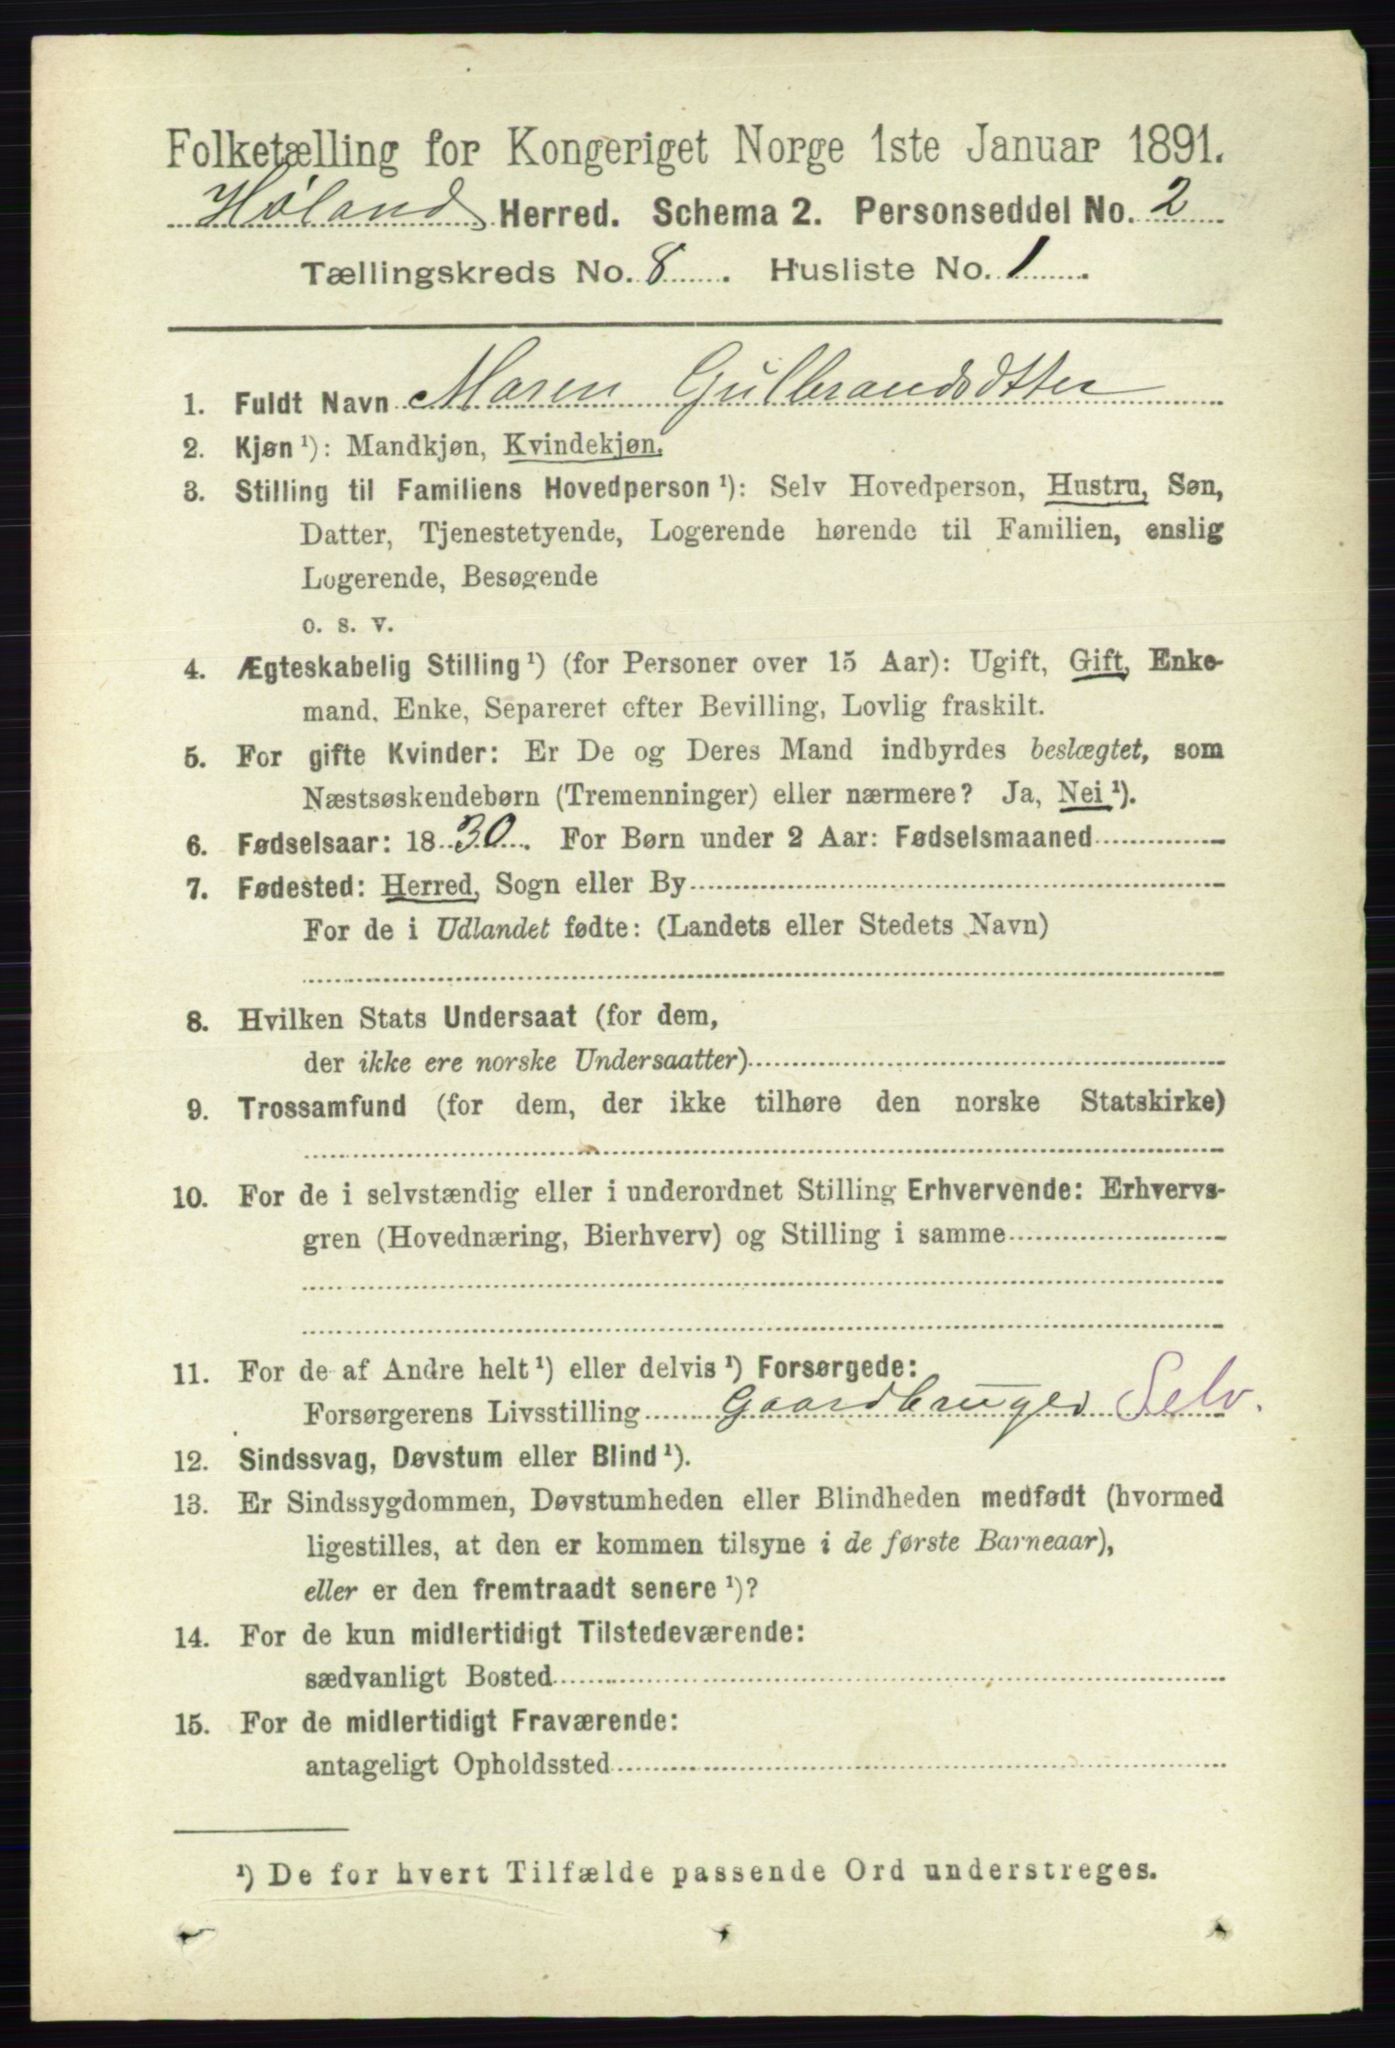 Folketælling for Kongeriget Norge 1ste Januar 1891.
Høland Herred. Schema 2. Personseddel No. 2
Tællingskreds No. 8. Husliste No. 1.
1. Fuldt Navn Maren Gulbrandsdtter
2. Kjøn ¹): Mandkjøn, Kvindekjøn.
3. Stilling til Familiens Hovedperson ¹): Selv Hovedperson, Hustru, Søn,
Datter, Tjenestetyende, Logerende hørende til Familien, enslig
Logerende, Besøgende
o. s. v.
4. Ægteskabelig Stilling ¹) (for Personer over 15 Aar): Ugift, Gift, Enke-
mand, Enke, Separeret efter Bevilling, Lovlig fraskilt.
5. For gifte Kvinder: Er De og Deres Mand indbyrdes beslægtet, som
Næstsøskendebørn (Tremenninger) eller nærmere? Ja, Nei ¹).
6. Fødselsaar: 1830. For Børn under 2 Aar: Fødselsmaaned
7. Fødested: Herred, Sogn eller By
For de i Udlandet fødte: (Landets eller Stedets Navn)
8. Hvilken Stats Undersaat (for dem,
der ikke ere norske Undersaatter)
9. Trossamfund (for dem, der ikke tilhøre den norske Statskirke)
10. For de i selvstændig eller i underordnet Stilling Erhvervende: Erhvervs-
gren (Hovednæring, Bierhverv) og Stilling i samme
11. For de af Andre helt ¹) eller delvis ¹) Forsørgede:
Forsørgerens Livsstilling Gaardbruger Selv.
12. Sindssvag, Døvstum eller Blind ¹).
13. Er Sindssygdommen, Døvstumheden eller Blindheden medfødt (hvormed
ligestilles, at den er kommen tilsyne i de første Barneaar),
eller er den fremtraadt senere ¹)?
14. For de kun midlertidigt Tilstedeværende:
sædvanligt Bosted
15. For de midlertidigt Fraværende:
antageligt Opholdssted
¹) De for hvert Tilfælde passende Ord understreges.